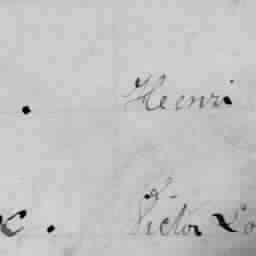 . Henri
x. Victor Lo